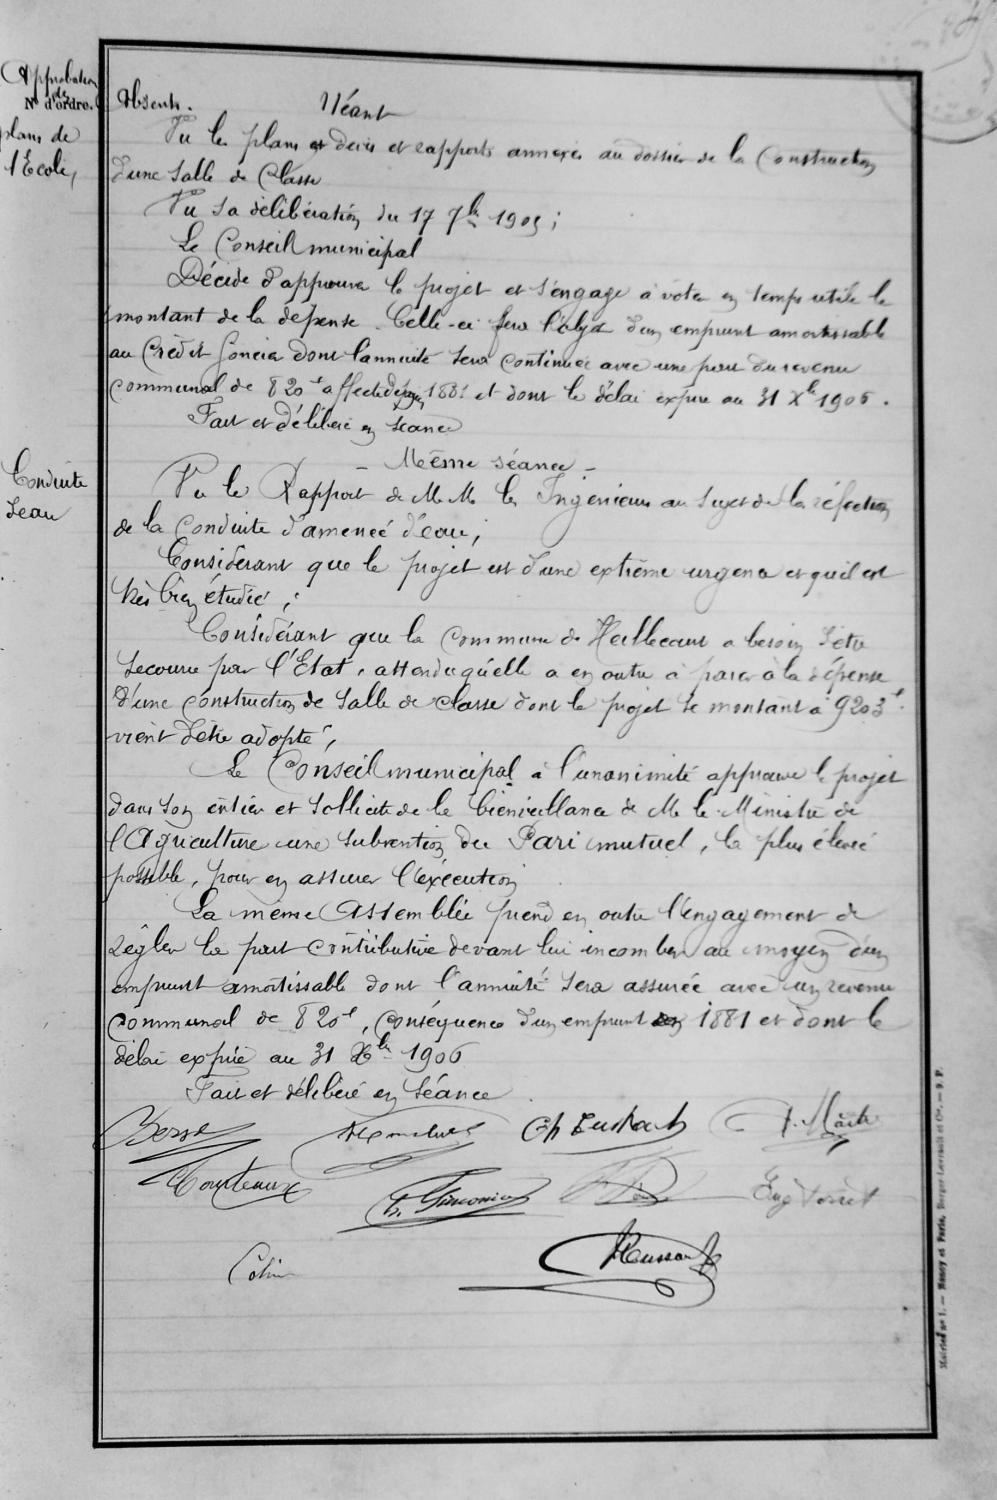 Approbation
des
N° d'ordre.
plans de
l'Ecole,
Absents. Néant
Vu les plans et devis et rapports annexés au dossier de la Construction
d'une Salle de Classe
Vu sa délibération du 17 7bre 1905 ;
Le Conseil municipal
Décide d'approuver le projet et s'engage à voter en temps utile le
montant de la dépense. Celle-ci fera l'objet d'un emprunt amortissable
au Crédit foncier dont l'annuité sera continuée avec une part du revenu
communal de 820f affecté depuis 1881 et dont le délai expire au 31 Xbre 1906.
Fait et Délibéré en séance
Conduite
d'eau
- Même séance -
Vu le Rapport de M.M. les Ingénieurs au sujet de la réfection
de la Conduite d'amenée d'eau ;
Considérant que le projet est d'une extrême urgence et qu'il est
très bien étudié ;
Considérant que la Commune de a besoin d'être
secourue par l'Etat, attendu qu'elle a en outre à parer à la dépense
d'une construction de Salle de classe dont le projet se montant à 9203f
vient d'être adopté,
Le Conseil municipal à l'unanimité approuve le projet
dans son entier et sollicite de la bienveillance de M. le Ministre de
l'Agriculture une subvention du Pari mutuel, la plus élevée
possible, pour en assurer l'exécution
La même Assemblée prend en outre l'engagement de
régler la part contributive devant lui incomber au moyen d'un
emprunt amortissable dont l'annuité sera assurée avec un revenu
communal de 820f, conséquence d'un emprunt en 1881 et dont le
délai expire au 31 Xbre 1906
Fait et délibéré en Séance
Ch
Courteaux
Colin
Modèle n° 1. — Nancy et Paris, Berger-Levrault et Cie. — 9 P.